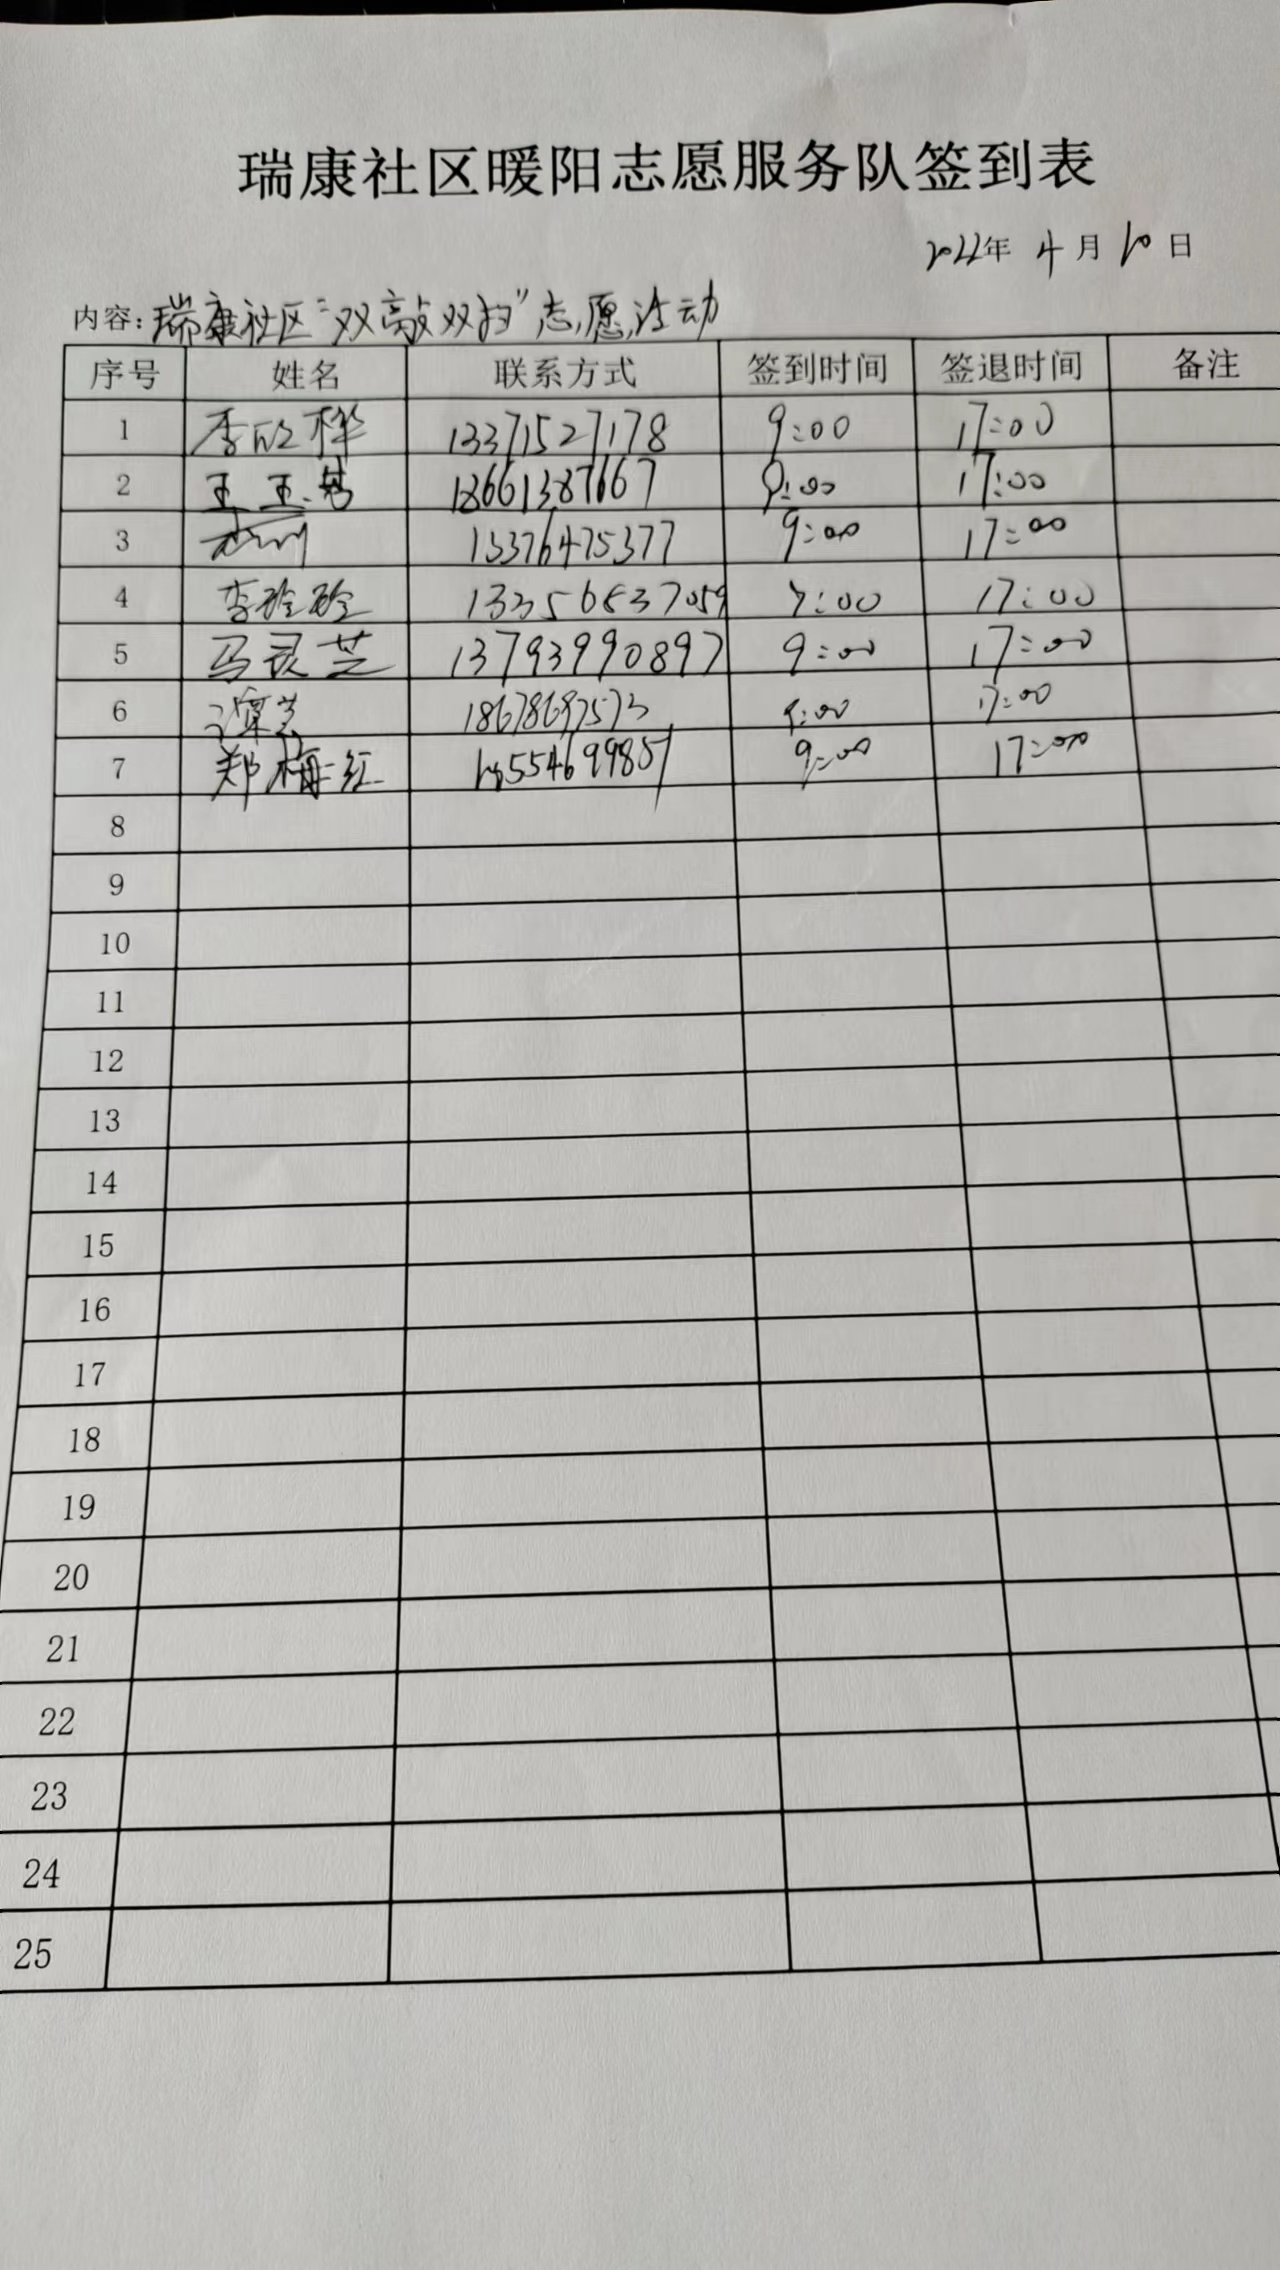 瑞康社区暖阳志愿服务队签到表
2022年 4月 10日
内容：瑞康社区“双敲双扫”志愿活动
序号 姓名 联系方式 签到时间 签退时间 备注
1 李欣樺 13371527178 9:00 17:00
2 王玉 18661387667 9:00 17:00
3 13376475377 9:00 17:00
4 李玲玲 17:00
5 马灵芝 13793990897 9:00 17:00
6 谭芳 18678687573 9:00 17:00
7 郑梅红 9:00 17:00
8
9
10
11
12
13
14
15
16
17
18
19
20
21
22
23
24
25